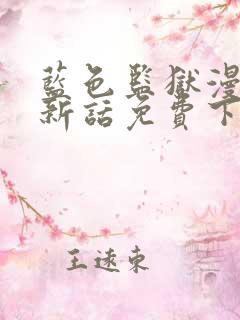 藍色監獄漫
新話免費下
王遠東